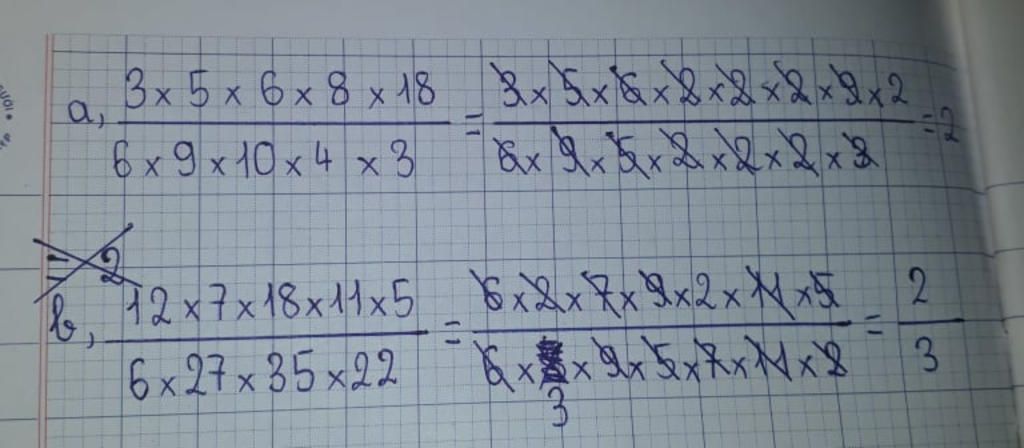 a, 3 × 5 × 6 × 8 × 18 / 6 × 9 × 10 × 4 × 3 = 3 × 5 × 6 × 2 × 2 × 2 × 9 × 2 / 6 × 9 × 5 × 2 × 2 × 2 × 3 = 2
= 2
b, 12 × 7 × 18 × 11 × 5 / 6 × 27 × 35 × 22 = 6 × 2 × 7 × 9 × 2 × 11 × 5 / 6 × 3 × 9 × 5 × 7 × 11 × 2 = 2 / 3